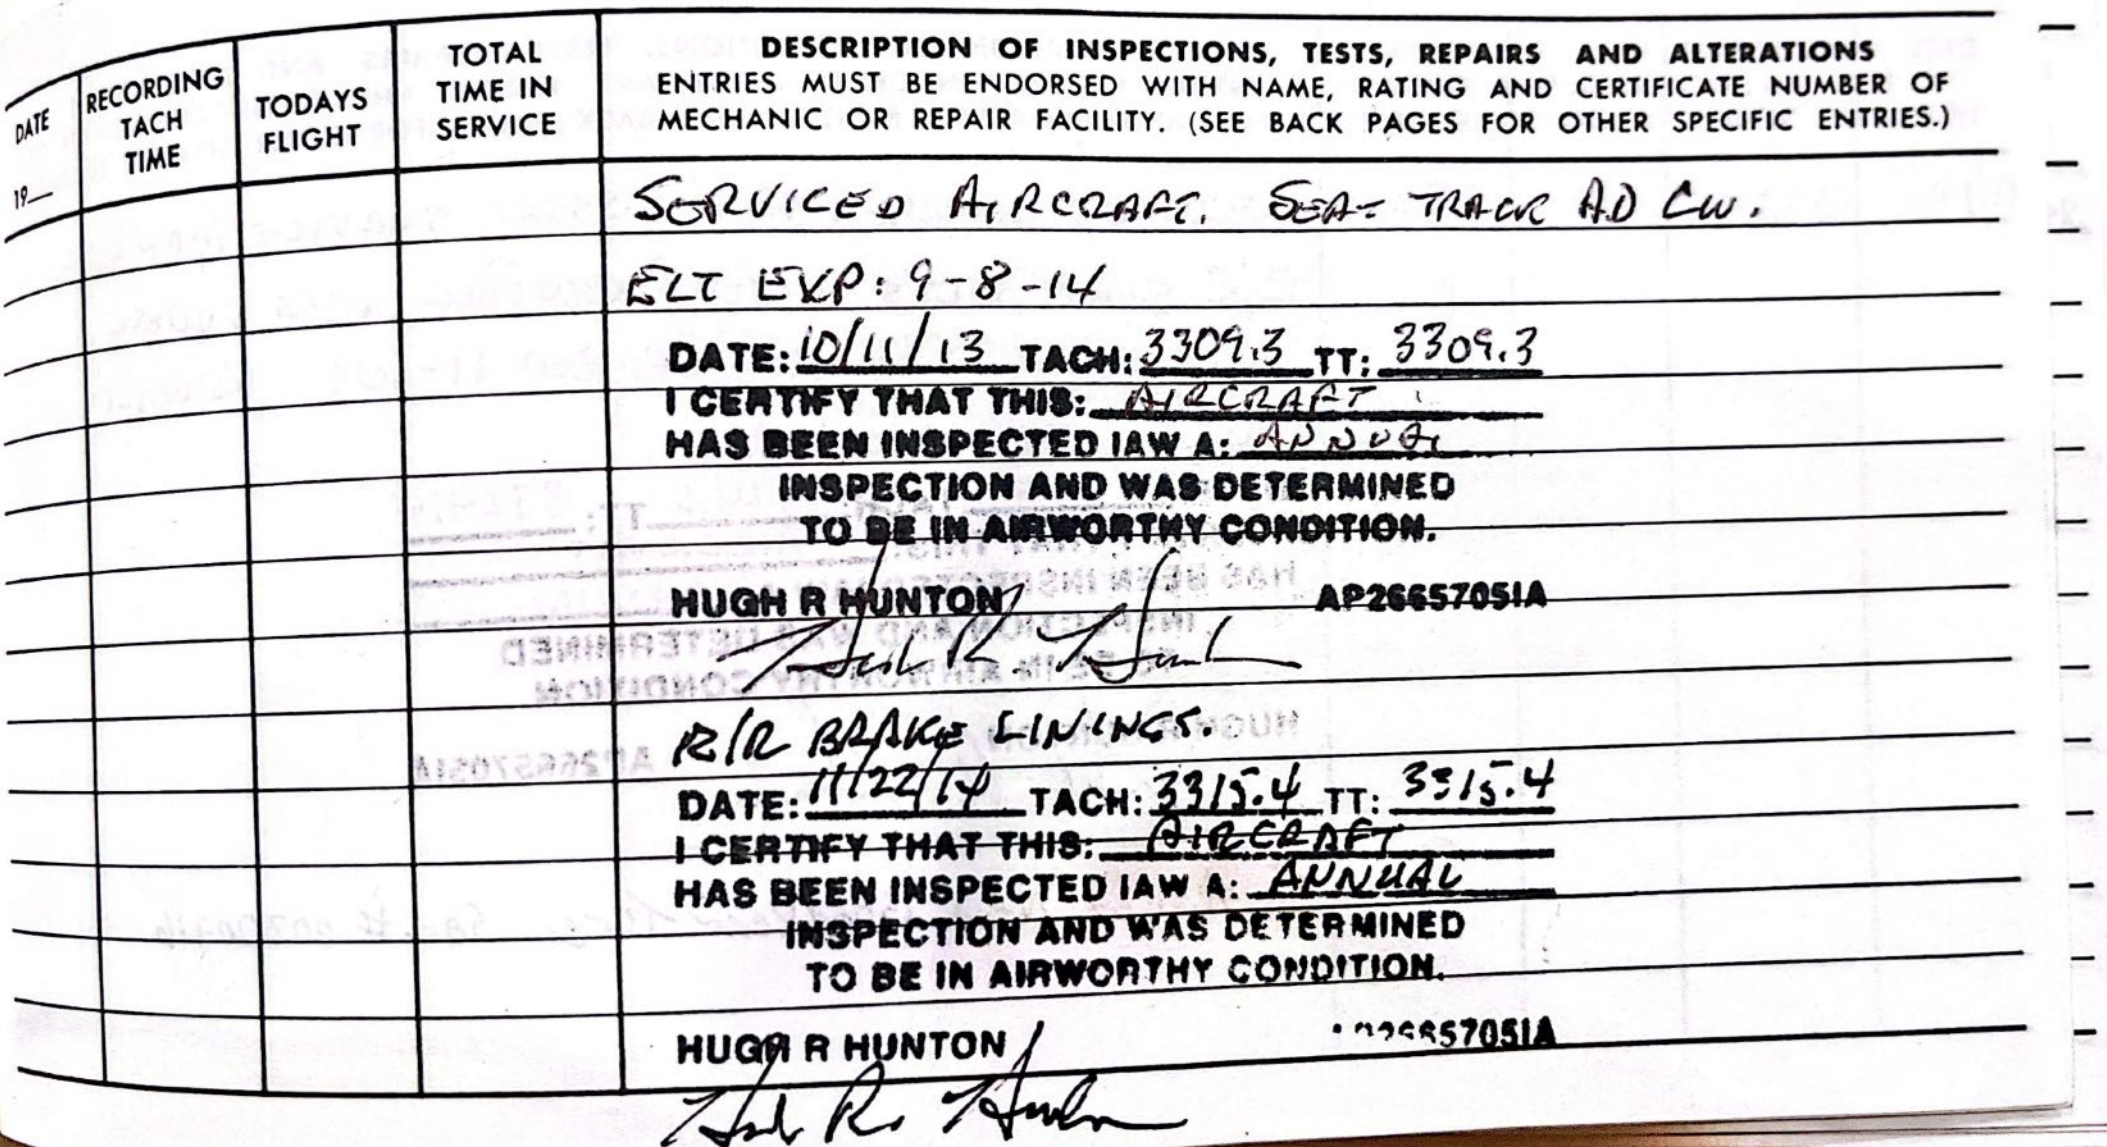 DATE
19—
RECORDING
TACH
TIME
TODAYS
FLIGHT
TOTAL
TIME IN
SERVICE
DESCRIPTION OF INSPECTIONS, TESTS, REPAIRS AND ALTERATIONS
ENTRIES MUST BE ENDORSED WITH NAME, RATING AND CERTIFICATE NUMBER OF
MECHANIC OR REPAIR FACILITY. (SEE BACK PAGES FOR OTHER SPECIFIC ENTRIES.)
SERVICED AIRCRAFT. SEAT TRACK AD CW.
ELT EXP: 9-8-14
DATE: 10/11/13 TACH: 3309.3 TT: 3309.3
I CERTIFY THAT THIS: AIRCRAFT
HAS BEEN INSPECTED IAW A: ANNUAL
INSPECTION AND WAS DETERMINED
TO BE IN AIRWORTHY CONDITION.
HUGH R HUNTON AP2665705IA
R/R BRAKE LININGS.
DATE: 11/22/14 TACH: 3315.4 TT: 3315.4
I CERTIFY THAT THIS: AIRCRAFT
HAS BEEN INSPECTED IAW A: ANNUAL
INSPECTION AND WAS DETERMINED
TO BE IN AIRWORTHY CONDITION.
HUGH R HUNTON